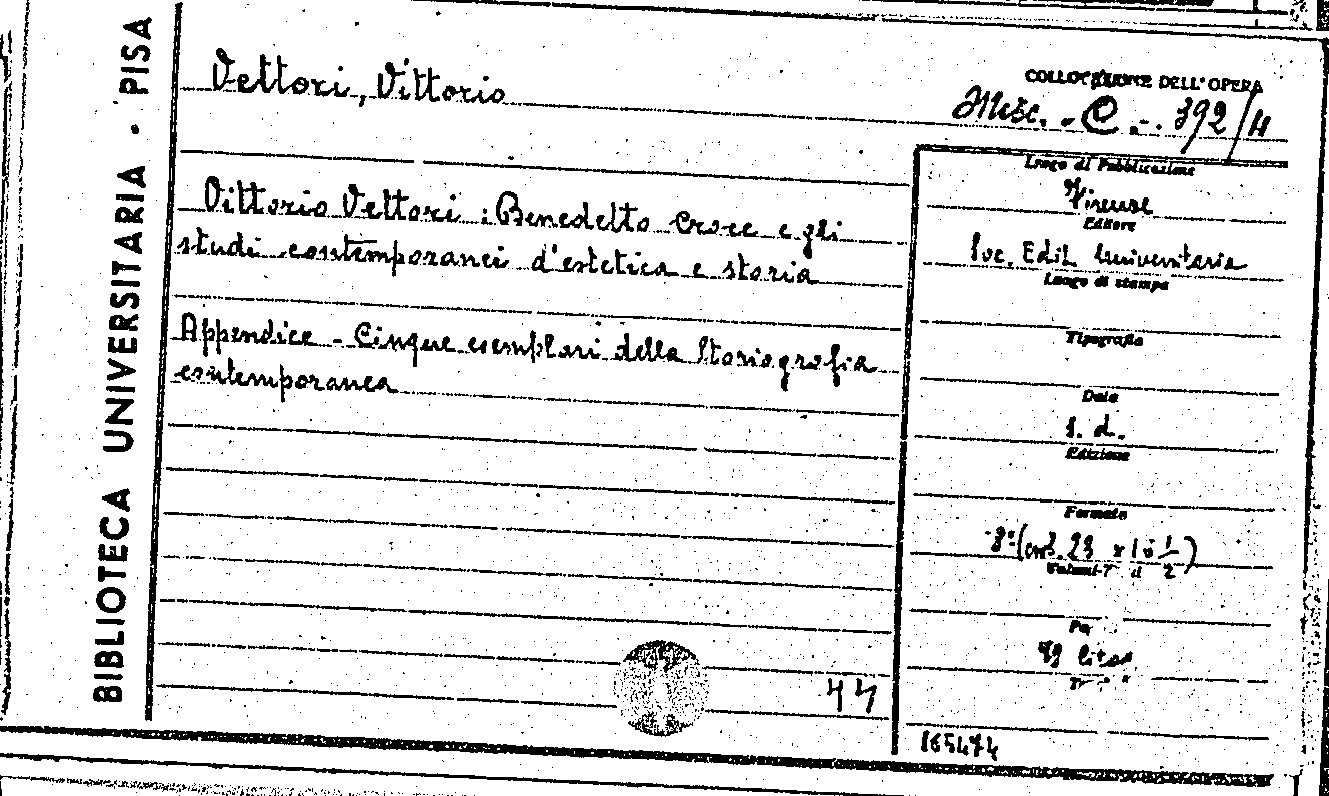 BIBLIOTECA UNIVERSITARIA · PISA
Vettori, Vittorio
COLLOCAZIONE DELL'OPERA
Misc. - C. -. 392/4
Vittorio Vettori : Benedetto Croce e gli
studi contemporanei d'estetica e storia
Appendice - Cinque esemplari della storiografia
contemporanea
44
Luogo di Pubblicazione
Firenze
Editore
Soc. Edit. Universitaria
Luogo di stampa
Tipografia
Data
s. d.
Edizione
Formato
8° (cm. 23 x
Volumi-T
165474